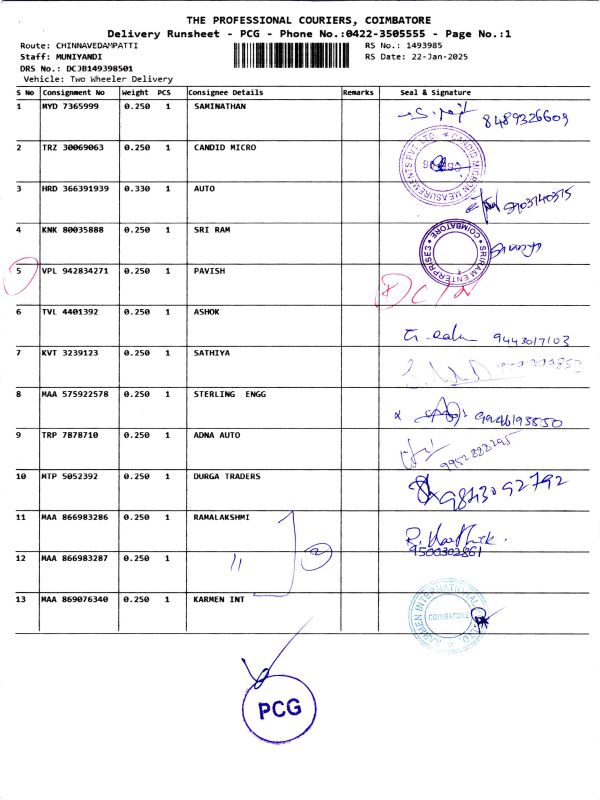 THE PROFESSIONAL COURIERS, COIMBATORE
Delivery Runsheet - PCG - Phone No.:0422-3505555 - Page No.:1
Route: CHINNAVEDAMPATTI RS No.: 1493985
Staff: MUNIYANDI RS Date: 22-Jan-2025
DRS No.: DCJB149398501
Vehicle: Two Wheeler Delivery
S No Consignment No Weight PCS Consignee Details Remarks Seal & Signature
1 MYD 7365999 0.250 1 SAMINATHAN 8489326609
2 TRZ 30069063 0.250 1 CANDID MICRO CANDID MICRON MEASUREMENTS PVT. LTD.
3 HRD 366391939 0.330 1 AUTO
4 KNK 80035888 0.250 1 SRI RAM SRIRAM ENTERPRISES COIMBATORE
5 VPL 942834271 0.250 1 PAVISH
6 TVL 4401392 0.250 1 ASHOK 9443017103
7 KVT 3239123 0.250 1 SATHIYA
8 MAA 575922578 0.250 1 STERLING ENGG
9 TRP 7878710 0.250 1 ADNA AUTO 9952822295
10 MTP 5052392 0.250 1 DURGA TRADERS
11 MAA 866983286 0.250 1 RAMALAKSHMI 9500302861
12 MAA 866983287 0.250 1 " 2
13 MAA 869076340 0.250 1 KARMEN INT KARMEN INTERNATIONAL COIMBATORE
PCG